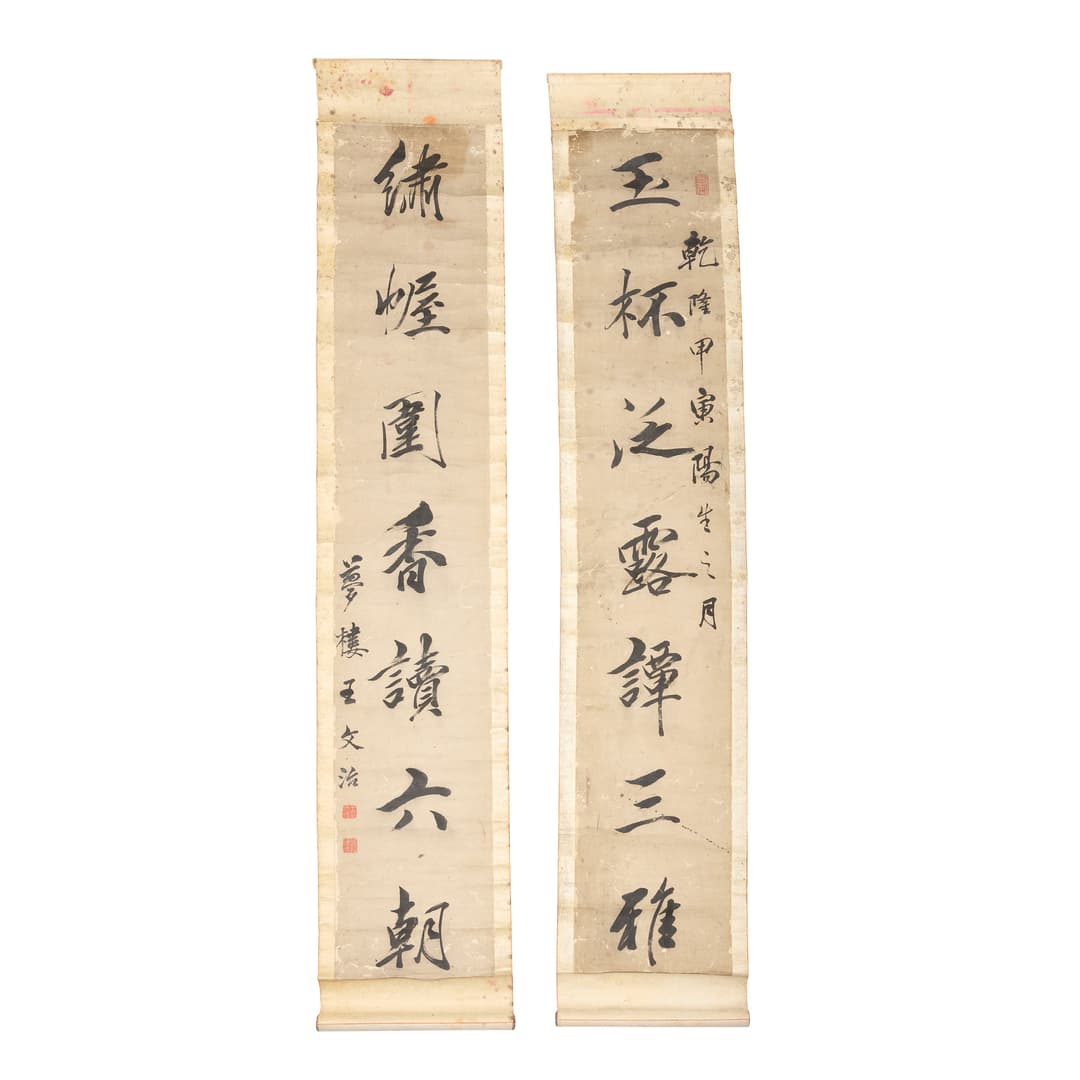 乾隆甲寅陽生之月
玉杯泛露譚三雅
繡幄圍香讀六朝
夢樓王文治